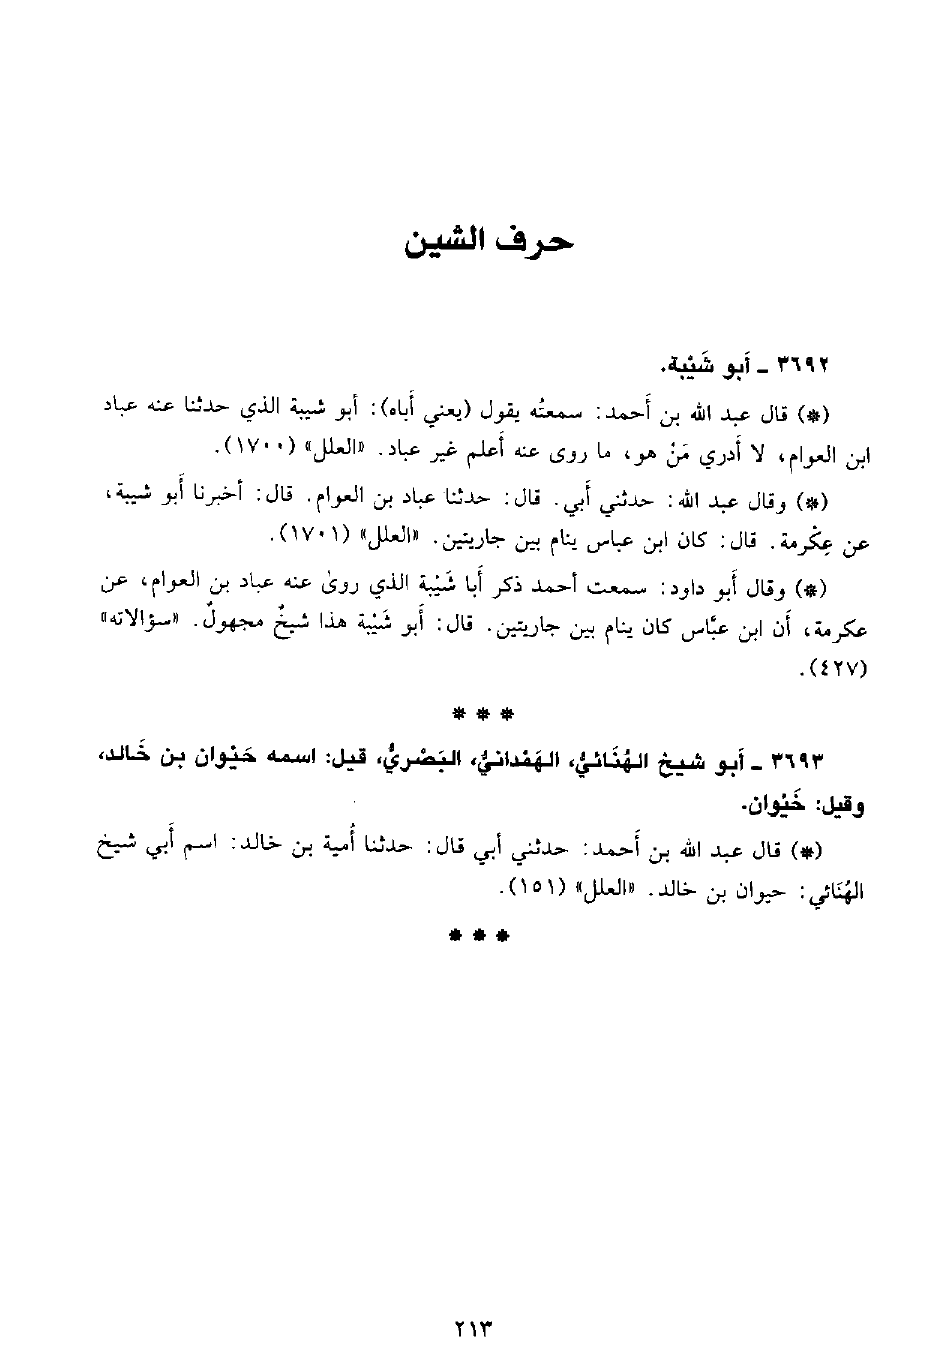 حرف الشين
٣٦٩٢ ـ أبو شَيْبة.
(*) قال عبد الله بن أَحمد: سمعتُه يقول (يعني أَباه): أبو شيبة الذي حدثنا عنه عباد
ابن العوام، لا أَدري مَنْ هو، ما روى عنه أَعلم غير عباد. «العلل» (١٧٠٠).
(*) وقال عبد الله: حدثني أَبي. قال: حدثنا عباد بن العوام. قال: أخبرنا أَبو شيبة،
عن عِكْرمة. قال: كان ابن عباس ينام بين جاريتين. «العلل» (١٧٠١).
(*) وقال أَبو داود: سمعت أحمد ذكر أَبا شَيْبة الذي روىٰ عنه عباد بن العوام، عن
عكرمة، أن ابن عبَّاس كان ينام بين جاريتين. قال: أَبو شَيْبة هذا شيخٌ مجهولٌ. «سؤالاته»
(٤٢٧).
* * *
٣٦٩٣ ـ أَبو شيخ الهُنَائيُّ، الهَمْدانيُّ، البَصْريُّ، قيل: اسمه حَيْوان بن خَالد،
وقيل: خَيْوان.
(*) قال عبد الله بن أَحمد: حدثني أبي قال: حدثنا أُمية بن خالد: اسم أَبي شيخ
الهُنَائي: حيوان بن خالد. «العلل» (١٥١).
* * *
٢١٣